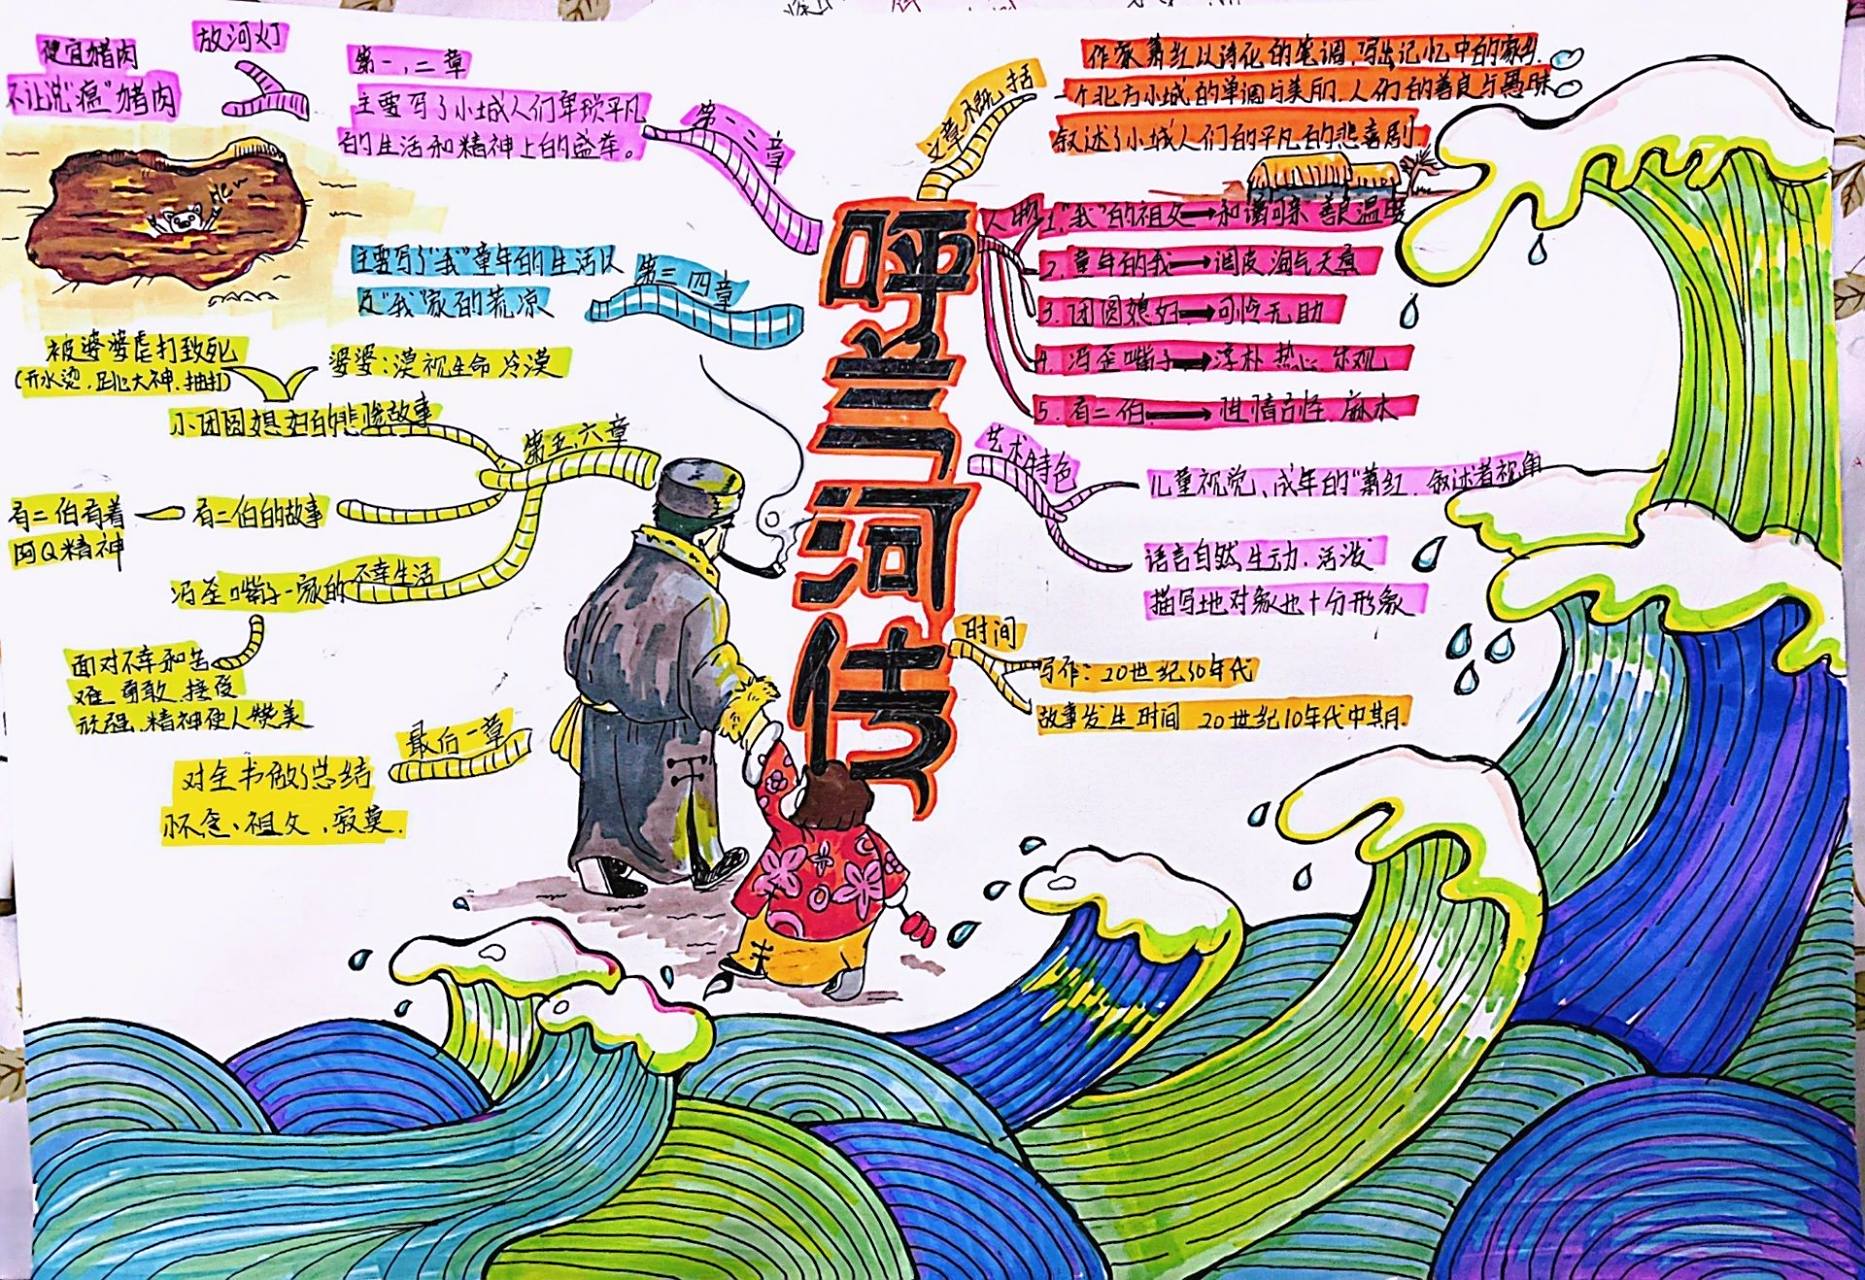 呼兰河传
便宜猪肉
不让说"瘟"猪肉
放河灯
第一,二章
主要写了小城人们卑琐平凡
的生活和精神上的盛举。
第一二章
主要写了"我"童年的生活以
及"我"家的荒凉
第三四章
被婆婆虐打致死
(开水烫.跳大神.抽打)
婆婆:漠视生命 冷漠
小团圆媳妇的悲惨故事
第五,六章
有二伯有着
阿Q精神
有二伯的故事
冯歪嘴子一家的不幸生活
面对不幸和苦
难 勇敢 接受
顽强.精神使人赞美
最后一章
对全书做了总结
怀念、祖父、寂寞.
文章概括
作家萧红以诗化的笔调.写出记忆中的家乡.
一个北方小城的单调与美丽.人们的善良与愚昧
叙述了小城人们的平凡的悲喜剧.
人物
1."我"的祖父→和谐可亲 善良温暖
2.童年的我→调皮 淘气天真
3.团圆媳妇→可怜无助
4.冯歪嘴子→淳朴 热心 乐观
5.有二伯→性情古怪.麻木
艺术特色
儿童视觉、成年的"萧红.叙述者视角
语言自然生动.活泼
描写地对象也十分形象
时间
写作:20世纪30年代
故事发生时间 20世纪10年代中期.